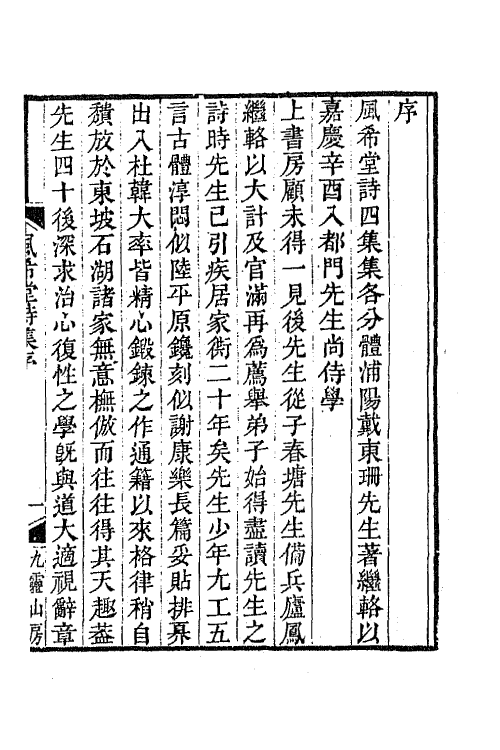 序
風希堂詩四集集各分體浦陽戴東珊先生著繼輅以
嘉慶辛酉入都門先生尚侍學
上書房顧未得一見後先生從子春塘先生僃兵廬鳳
繼輅以大計及官滿再爲薦舉弟子始得盡讀先生之
詩時先生已引疾居家衖二十年矣先生少年尢工五
言古體淳悶似陸平原鑱刻似謝康樂長篇妥貼排奡
出入杜韓大率皆精心鍛鍊之作通籍以來格律稍自
穨放於東坡石湖諸家無意橅倣而往往得其天趣葢
先生四十後深求治心復性之學旣與道大適視辭章
風希堂詩集序
一
九靈山房